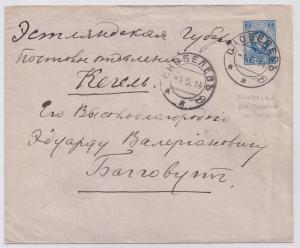 Эстляндская Губер
Почтовое отделенiе
Кегель.
Его Высокоблагородiю
Эдуарду Валерiановичу
Багговутъ.
СКОБЕЛЕВЪ
-5.14
СКОБЕЛЕВЪ
7
7